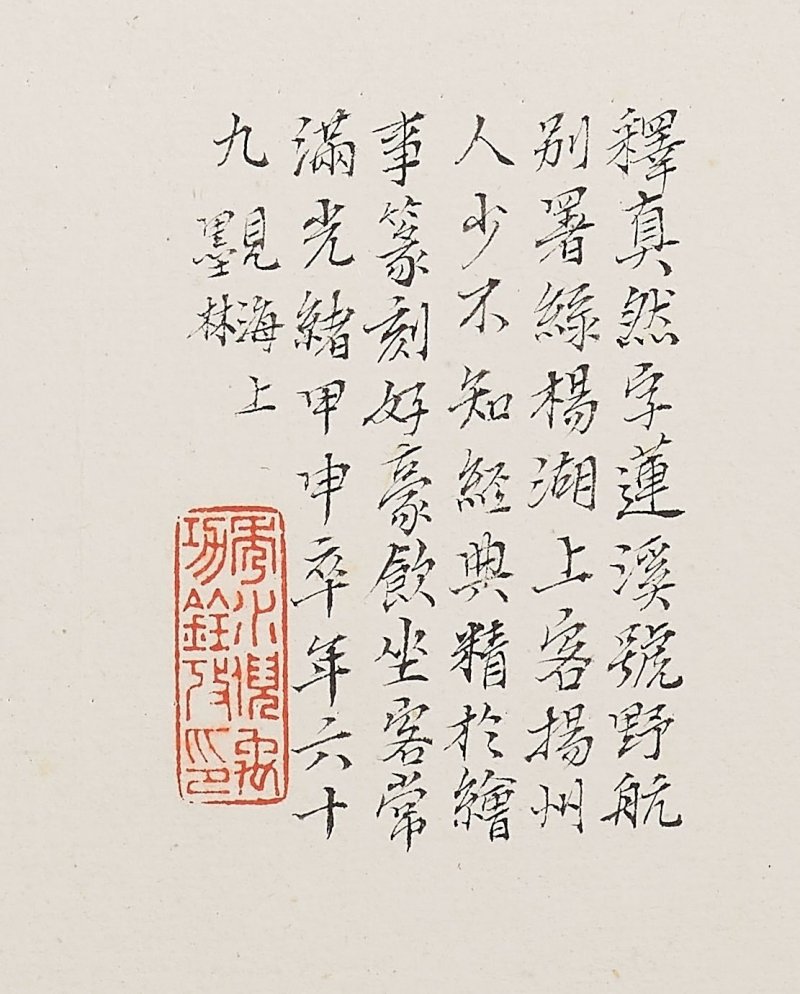 釋真然字蓮溪號野航
别署綠楊湖上客揚州
人少不知經典精於繪
事篆刻好豪飲坐客常
滿光緒甲申卒年六十
九
見海上
墨林
秀水倪禹
功銓攷印